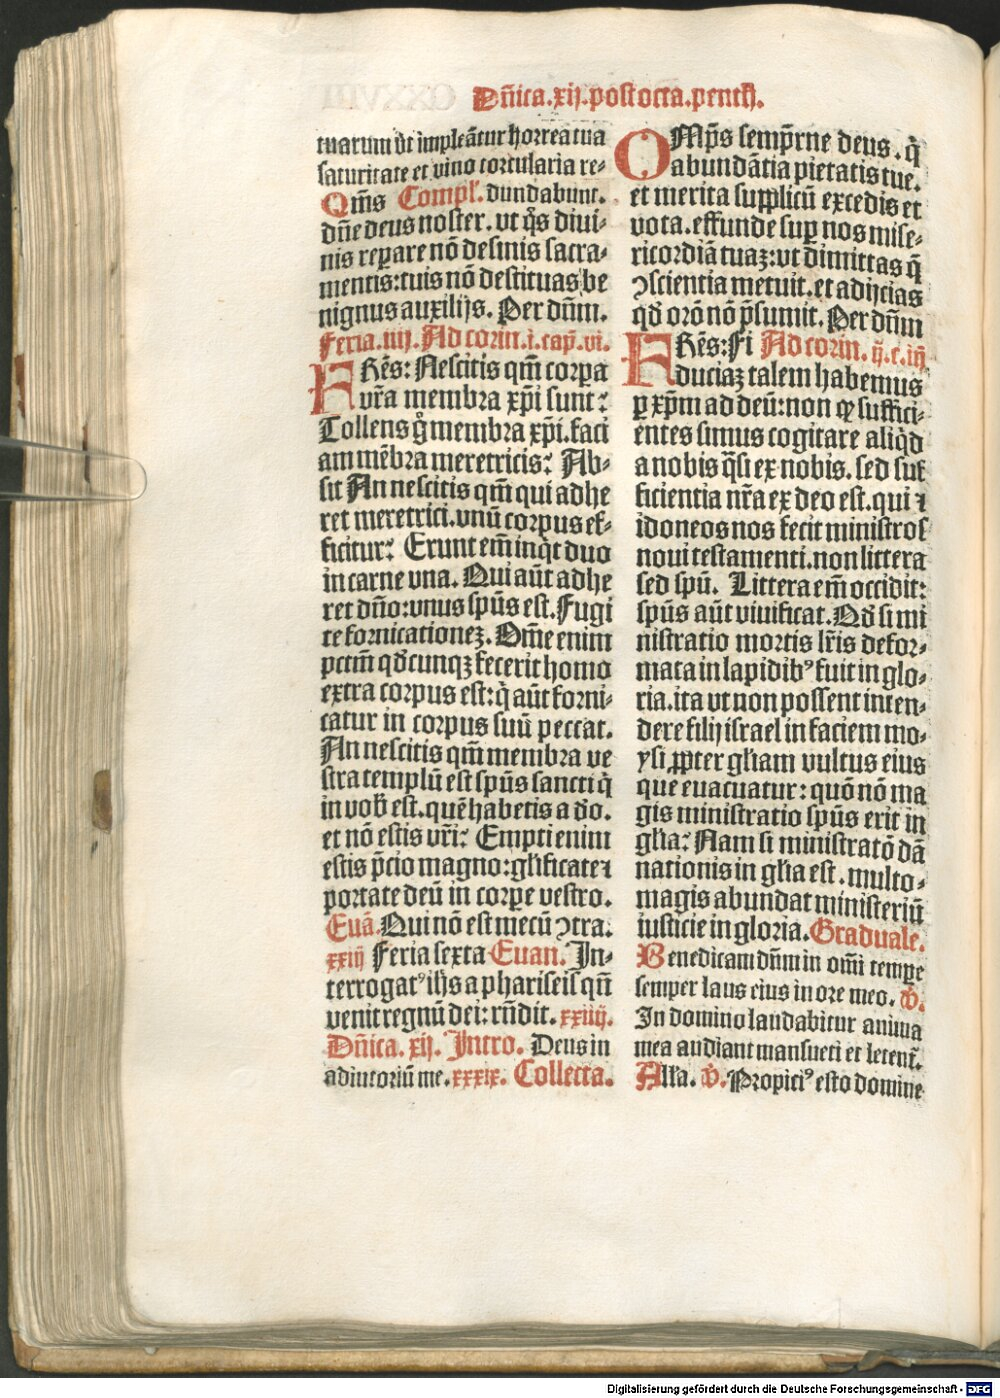 Dñica.xij.post octa.penth̃.
tuarum vt impleãtur horrea tua
saturitate et vino torcularia re-
Qm̃s Compl̃. dundabunt.
dñe deus noster. vt q̃s diui-
nis reparare nõ desinis sacra-
mentis: tuis nõ destituas be
nignus auxilijs. Per dñm.
Feria.iiij. Ad corin.i.cap̃.vi.
FRẽs: Nescitis qm̃ corpora
vr̃a membra xp̃i sunt?
Tollens g̊ membra xp̃i. faci
am mẽbra meretricis? Ab-
sit An nescitis qm̃ qui adhe
ret meretrici. vnũ corpus ef-
ficitur? Erunt em̃ inq̃t duo
in carne vna. Qui aũt adhe
ret dño: vnus spũs est. Fugi
te fornicationeꝫ. Om̃e enim
pctm̃ qd̃cunqꝫ fecerit homo
extra corpus est: q̃ aũt forni-
catur in corpus suũ peccat.
An nescitis qm̃ membra ve
stra templũ est spũs sancti q̃
in vob̃ est. quẽ habetis a do.
et nõ estis vr̃i? Empti enim
estis p̃cio magno: gl̃ificate ⁊
portate deũ in corpore vestro.
Euã. Qui nõ est mecũ ꝯtra.
xxiij Feria sexta Euan. In-
terrogatꝰ ih̃s a phariseis qñ
venit regnũ dei: rñdit. xxiiij.
Dñica. xij. Intro. Deus in
adiutoriũ me. xxxix. Collecta.
OMp̃s semp̃rne deus. q̃
abundãtia pietatis tue.
et merita supplicũ excedis et
vota. effunde sup̃ nos mise-
ricordiã tuaꝫ: vt dimittas q̃
ꝯscientia metuit. et adijcias
qd̃ orõ nõ p̃sumit. Per dñm
FRẽs: Fi Ad corin. ij. c. iij
duciaꝫ talem habemus
ꝑ xp̃m ad deũ: non ꝙ suffici-
entes simus cogitare aliq̃d
a nobis q̃si ex nobis. sed suf
ficientia nr̃a ex deo est. qui ⁊
idoneos nos fecit ministros
noui testamenti. non littera
sed spũ. Littera em̃ occidit:
spũs aũt viuificat. Qd̃ si mi
nistratio mortis lr̃is defor-
mata in lapidibꝰ fuit in glo-
ria. ita vt non possent inten-
dere filij israel in faciem mo-
ysi ꝓpter gl̃iam vultus eius
que euacuatur: quõ nõ ma
gis ministratio spũs erit in
gl̃ia? Nam si ministratõ dã
nationis in gl̃ia est. multo-
magis abundat ministeriũ
iusticie in gloria. Graduale.
Benedicam dñm in om̃i tempore
semper laus eius in ore meo. v̊.
In domino laudabitur anima
mea audiant mansueti et letent̃.
All̃a. v̊. Propiciꝰ esto domine
Digitalisierung gefördert durch die Deutsche Forschungsgemeinschaft - DFG